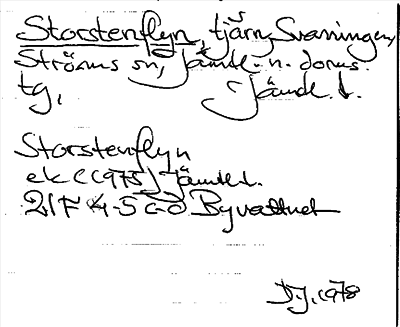 Storstenflyn, tjärn, Svaningen,
Ströms sn, Jämtl. n. doms.
tg, Jämtl. l.
Storstenflyn
ek (1975) Jämtl.
21F 4-5 c-d Byvattnet
D.J. 1978